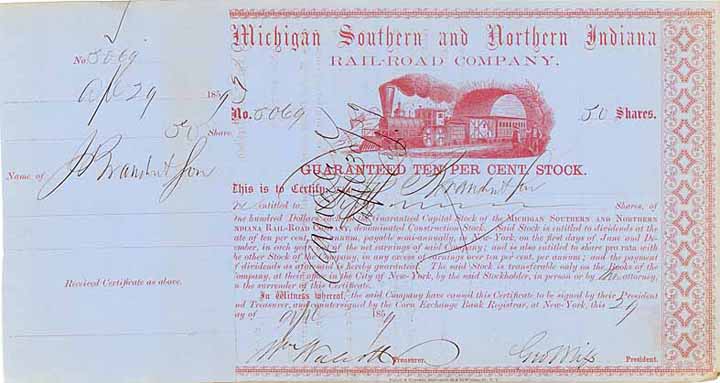 No. 5069
Apl 29 1859
50 Shares
Name of J Brandt Jon
Received Certificate as above.
Michigan Southern and Northern Indiana
RAIL-ROAD COMPANY.
No. 5069 50 Shares.
GUARANTEED TEN PER CENT. STOCK.
This is to Certify, J Brandt Jon
entitled to Fifty Shares, of
ne hundred Dollars Guaranteed Capital Stock of the MICHIGAN SOUTHERN AND NORTHERN
NDIANA RAIL-ROAD COMPANY, denominated Construction Stock. Said Stock is entitled to dividends at the
ate of ten per cent. per annum, payable semi-annually, in New-York, on the first days of June and De-
ember, in each year, out of the net earnings of said Company; and is also entitled to share pro rata with
he other Stock of the Company, in any excess of earnings over ten per cent. per annum; and the payment
f dividends as aforesaid is hereby guaranteed. The said Stock is transferable only on the Books of the
ompany, at their office in the City of New-York, by the said Stockholder, in person or by his attorney,
n the surrender of this Certificate.
In Witness whereof, the said Company have caused this Certificate to be signed by their President
nd Treasurer, and countersigned by the Corn Exchange Bank Registrar, at New-York, this 29
ay of Apl 1859
Treasurer. President.